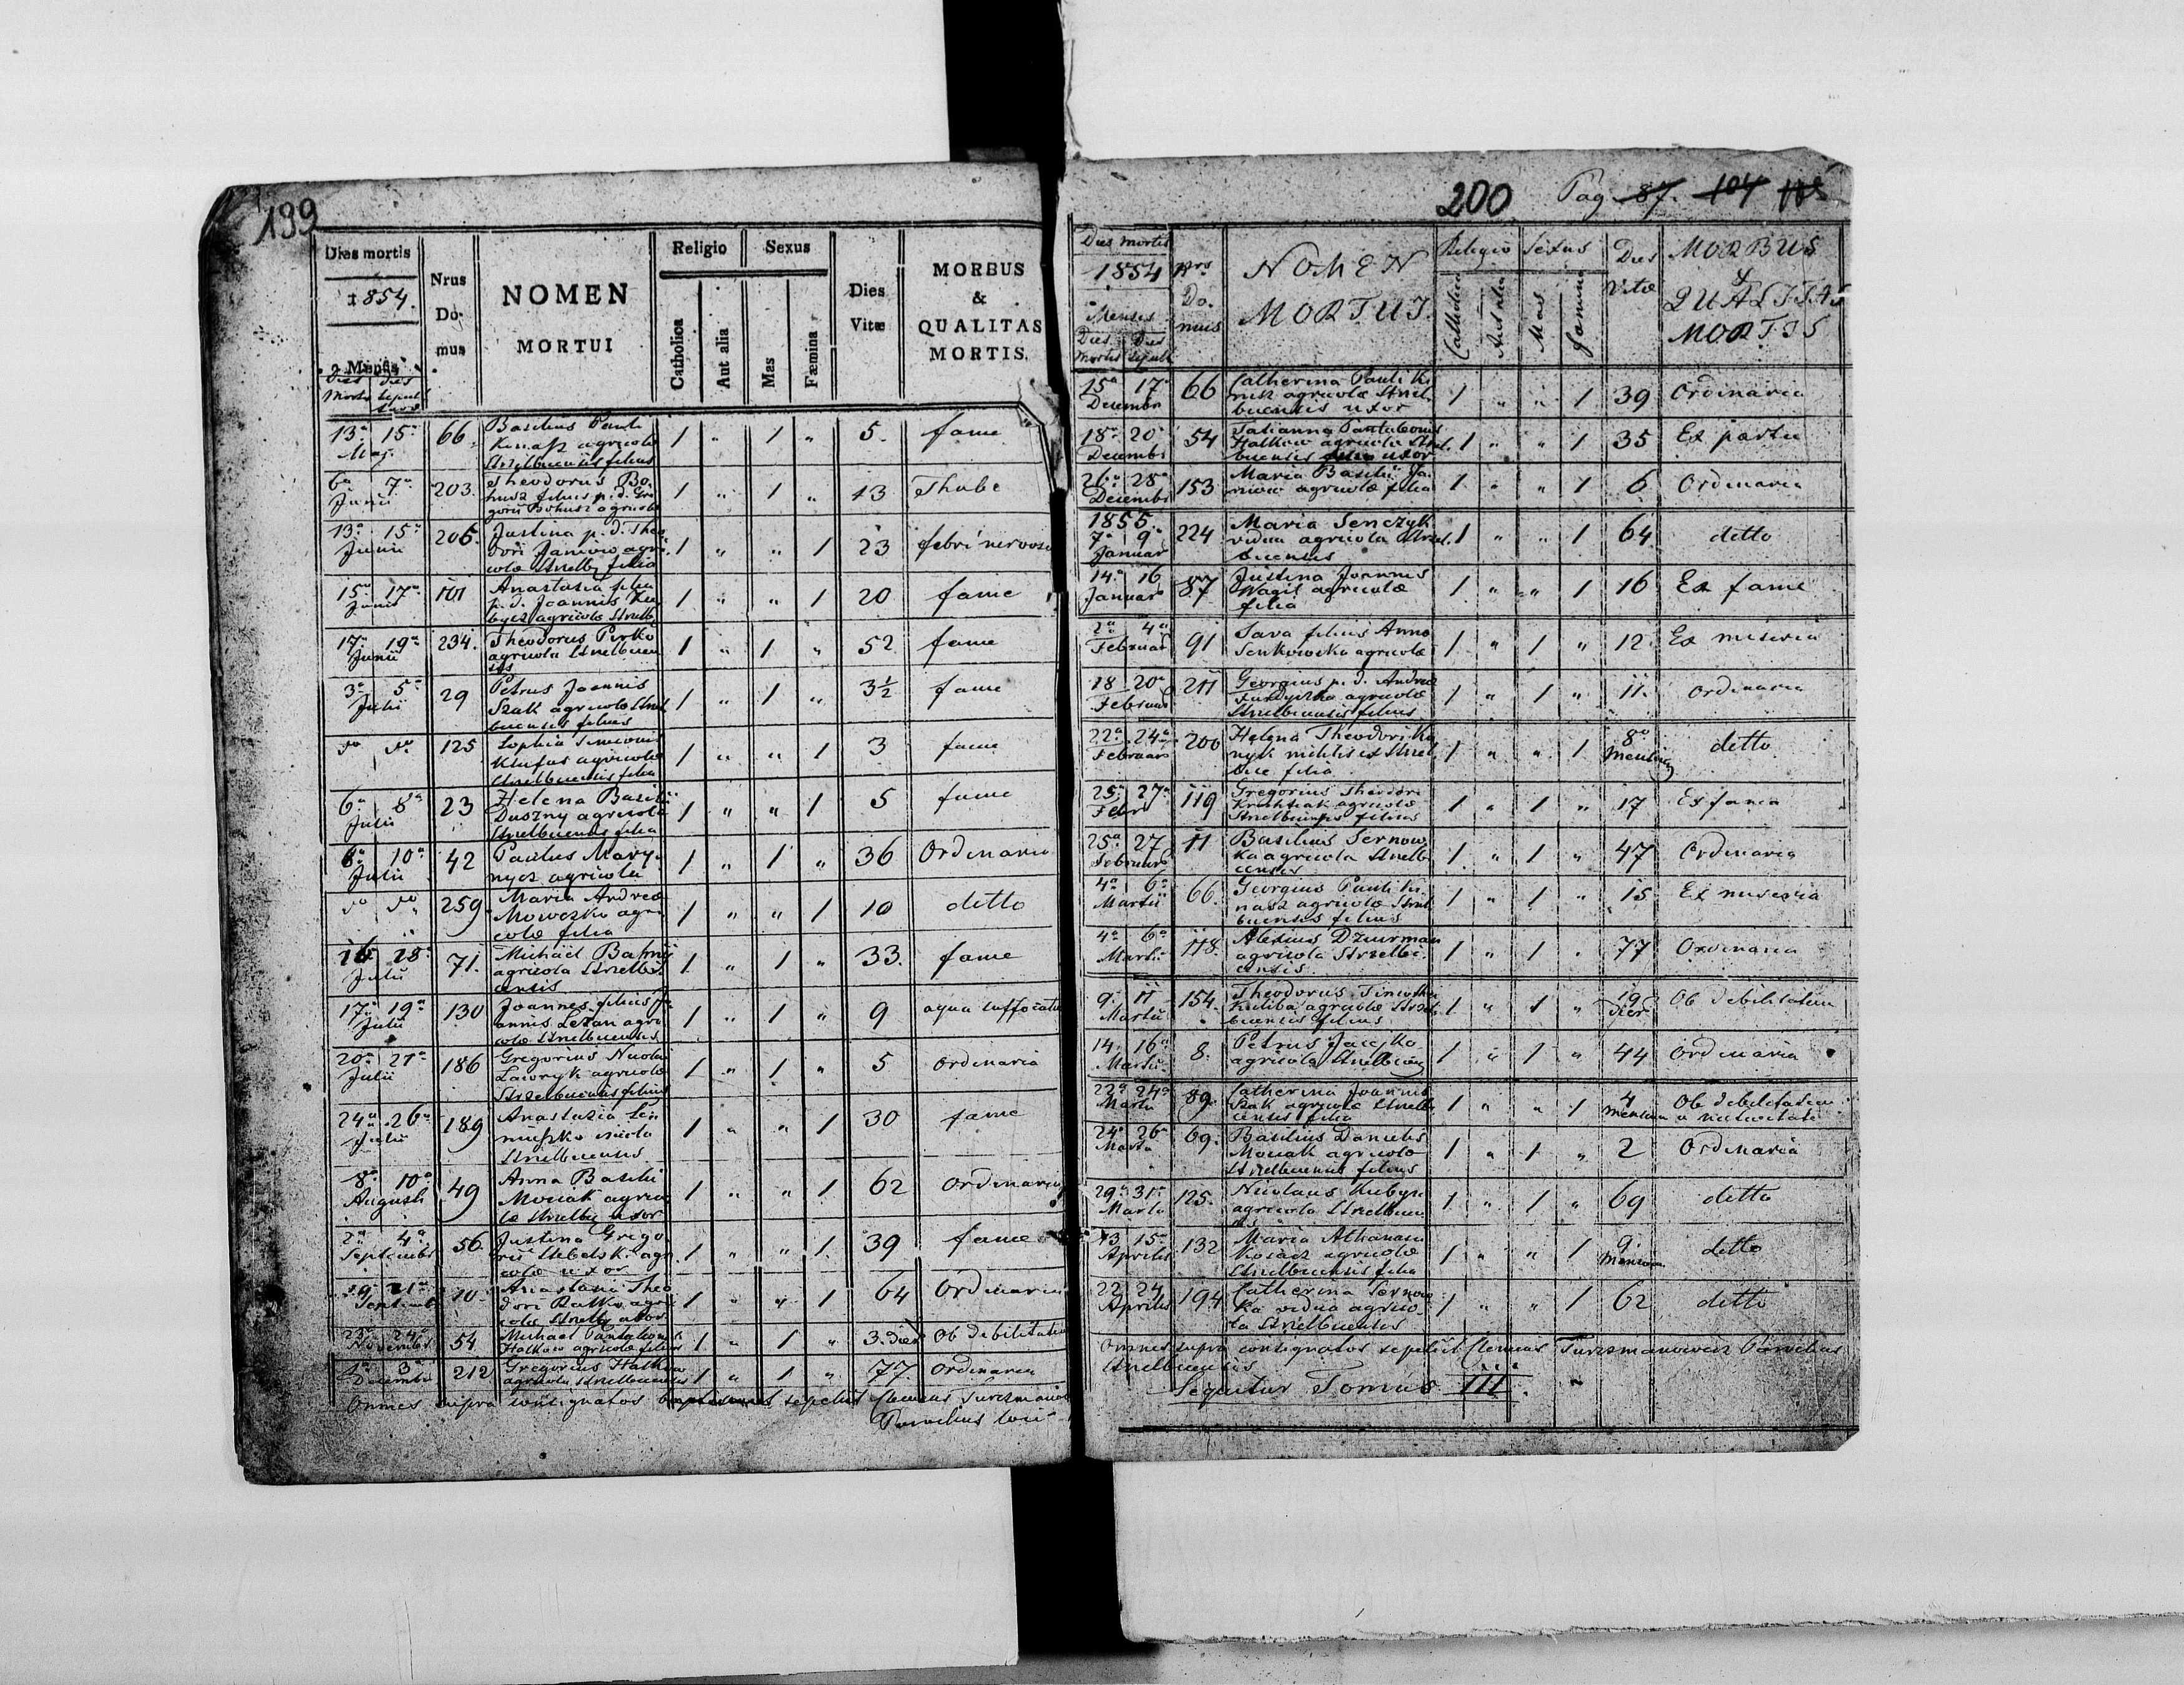 199
Dies mortis
1854.
Mensis
dies mortis dies sepulturae
Nrus Domus
NOMEN
MORTUI
Religio
Catholica
Aut alia
Sexus
Mas
Fæmina
Dies Vitæ
MORBUS
&
QUALITAS
MORTIS.
13a 15a Maj. 66. Basilius Pauli
Kinasz agricolae
Strzelbicensis filius 1 " 1 " 5. fame
6a 7a Junii 203. Theodorus Bo-
husz filius p. d. Gre
gorii Bohusz agricolae 1 " 1 " 13 Thabe
13a 15a Junii 205. Justina p. d. Theo
dori Janiow agri-
colae Strzelby filia 1 " " 1 23 febri nervosa
15a 17a Junii 101 Anastasia filia
p. d. Joannis Ku
bycz agricolae Strzelb. 1 " " 1 20 fame
17a 19a Junii 234. Theodorus Pirko
agricola Strzelbicen
sis 1 " 1 " 52 fame
3a 5a Julii 29 Petrus Joannis
Szak agricolae Strzel
bicensis filius 1 " 1 " 3½ fame
do do 125 Sophia Simeonis
agricolae
Strzelbicensis filia 1 " " 1 3 fame
6a 8a Julii 23 Helena Basilii
Duszny agricolae
Strzelbicensis filia 1 " " 1 5 fame
8a 10a Julii 42 Paulus Mary-
nycz agricola 1 " 1 " 36 Ordinaria
do do 259 Maria Andreae
Moweszko agri
colae filia 1 " " 1 10 ditto
16 18a Julii 71. Michäel Bahnij
agricola Strzelbi
censis 1 " 1 " 33. fame
17a 19a Julii 130 Joannes filius Jo
annis Lezan agri
colae Strzelbicensis 1 " 1 " 9 aqua suffocatus
20a 21a Julii 186 Gregorius Nicolai
Lawryk agricolae
Strzelbicensis filius 1 " 1 " 5 Ordinaria
24a 26a Julii 189 Anastasia
vidua
Strzelbicensis 1 " " 1 30 fame
8a 10a Augusti 49 Anna Basilii
Moriak agrico
lae Strzelby uxor 1 " " 1 62 Ordinaria
2a 4a Septembr 56. Justina Grego
rii Stebelski agri
colae uxor 1 " " 1 39 fame
19 21a Septemb 10. Anastasia Theo
dori Ratko agri
colae Strzelby uxor 1 " " 1 64 Ordinaria
23a 24a Novembr 54. Michael Pantaleonis
Halkow agricolae filius 1 " 1 " 3. dier Ob debilitatem
1a 3a Decembr 212 Gregorius Halkow
agricola Strzelbicensis 1 " 1 " 77. Ordinaria
Omnes supra consignatos sepelivit Clemens Turczmanowicz
Parochus loci
200 Pag. 87. 104 105
Dies mortis
1854
Mensis
Dies mortis Dies sepult
Nrus Domus
NOMEN
MORTUI.
Religio
Catholica
Aut alia
Sexus
Mas
Fæmina
Dies Vitæ
MORBUS
&
QUALITAS
MORTIS
15a 17a Decembr 66 Catherina Pauli Ki
nasz agricolae Strzel
bicensis uxor 1 " " 1 39 Ordinaria
18a 20a Decembr 54 Tatianna Pantaleonis
Halkow agricolae Strzel.
bicensis uxor 1 " " 1 35 Ex partu
26a 28a Decembr 153 Maria Basilii Ja
niow agricolae filia 1 " " 1 6 Ordinaria
1855
7a 9a Januar 224 Maria Senczyk
vidua agricola Strzel.
bicensis 1 " " 1 64 ditto
14a 16 Januar 87 Justina Joannis
Wasil agricolae
filia 1 " " 1 16 Ex fame
2a 4a Februar 91 Sava filius Anna
Senkowska agricolae 1 " 1 " 12 Ex miseria
18 20a Februar 211 Georgius p. d. Andreae
Furdyczka agricolae
Strzelbicensis filius 1 " 1 " 11. Ordinaria
22a 24a Februar 200 Helena Theodori Ka
nyk militis ex Strzel
bice filia 1 " " 1 8o Mensium ditto
25a 27a Febr 119 Gregorius Theodori
agricolae
Strzelbicensis filius 1 " 1 " 17 Ex famia
25a 27 Februar 11 Basilius Sernow
ka agricola Strzelbi
censis 1 " 1 " 47 Ordinaria
4a 6a Martii 66. Georgius Pauli Ki
nasz agricolae Strzel
bicensis filius 1 " 1 " 15 Ex miseria
4a 6a Martii 118. Alexius Dziurman
agricola Strzelbi
censis 1 " 1 " 77 Ordinaria
9. 11 Martii 154. Theodorus Timothei
Kuliba agricolae Strzel
bicensis filius 1 " 1 " 19 dier Ob debilitatem
14. 16a Martii 8. Petrus Jacejko
agricola Strzelbicen 1 " 1 " 44 Ordinaria
22a 24a Martii 89. Catherina Joannis
Szak agricolae Strzelbi
censis filia 1 " " 1 4 Mensium Ob debilitatem
a nativitate
24a 26a Martii 69. Basilius Danielis
Moriak agricolae
Strzelbicensis filius 1 " 1 " 2 Ordinaria
29a 31a Martii 125. Nicolaus Kubyn
agricola Strzelbicen
sis 1 " 1 " 69 ditto
13 15a Aprilis 132 Maria Athanasii
Kosacz agricolae
Strzelbicensis filia 1 " " 1 9. Mensium ditto
22 24 Aprilis 194 Catherina Sernow
ka vidua agrico-
la Strzelbicensis 1 " " 1 62 ditto
Omnes supra consignatos sepelivit Clemens Turczmanowicz Parochus
Strzelbicensis
Sequitur Tomus III.